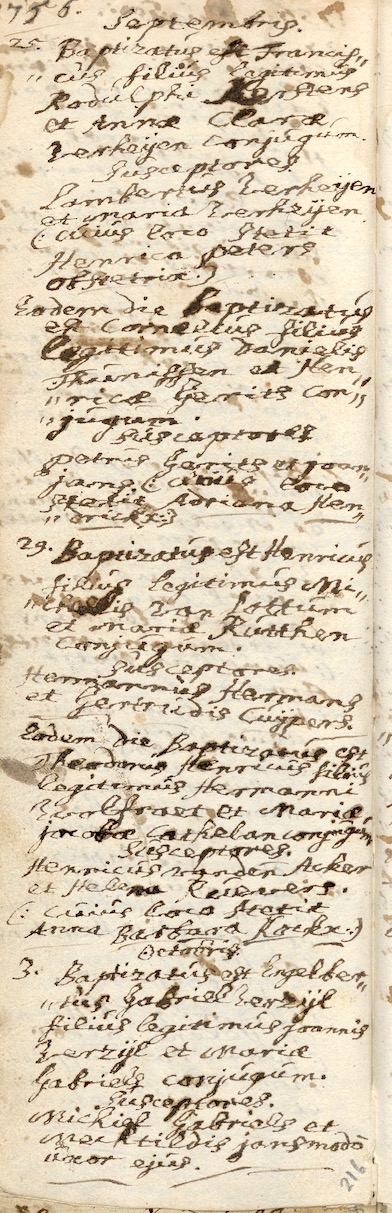 1756.
Septembris.
25. Baptizatus est Francis„
„cus filius legitimus
Rodulphi Kersters
et Annæ Claræ
Verheijen conjugum.
Susceptores
Lambertus Verheijen
et Maria Verheijen
(: cuius loco stetit
Henrica peters
obstetrix:)
Eodem die Baptizatus
est Cornelius filius
legittimus Danielis
Theunissen et Hen„
„ricæ Gerits con„
„jugum.
Susceptores
petrus Gerrits et joan„
jans (: cuius loco
stetit Adriana Hen„
„dricks:)
29. Baptizatus est Henricus
filius legitimus Mi„
„chaelis Van Lottum
et Maria Rutthen
conjugum.
Susceptores
Hermannus Hermans
et Gertrudis Cuypers.
Eodem die Baptizatus est
Theodorus Henricus filius
legitimus Hermanni
et Mariæ
jacobæ Cathelan conjugum
Susceptores.
Henricus vanden Acker
et Helena Kuevers.
(: cuius loco stetit
Anna Barbara Lockx:)
Octobris
3. Baptizatus est Engelber„
„tus Gabriel Verzijl
filius legitimus joannis
Verzijl et Mariæ
Gabriels conjugum.
Susceptores.
Michiel Gabriels et
Mechtildis jans modo
uxor ejus.
216